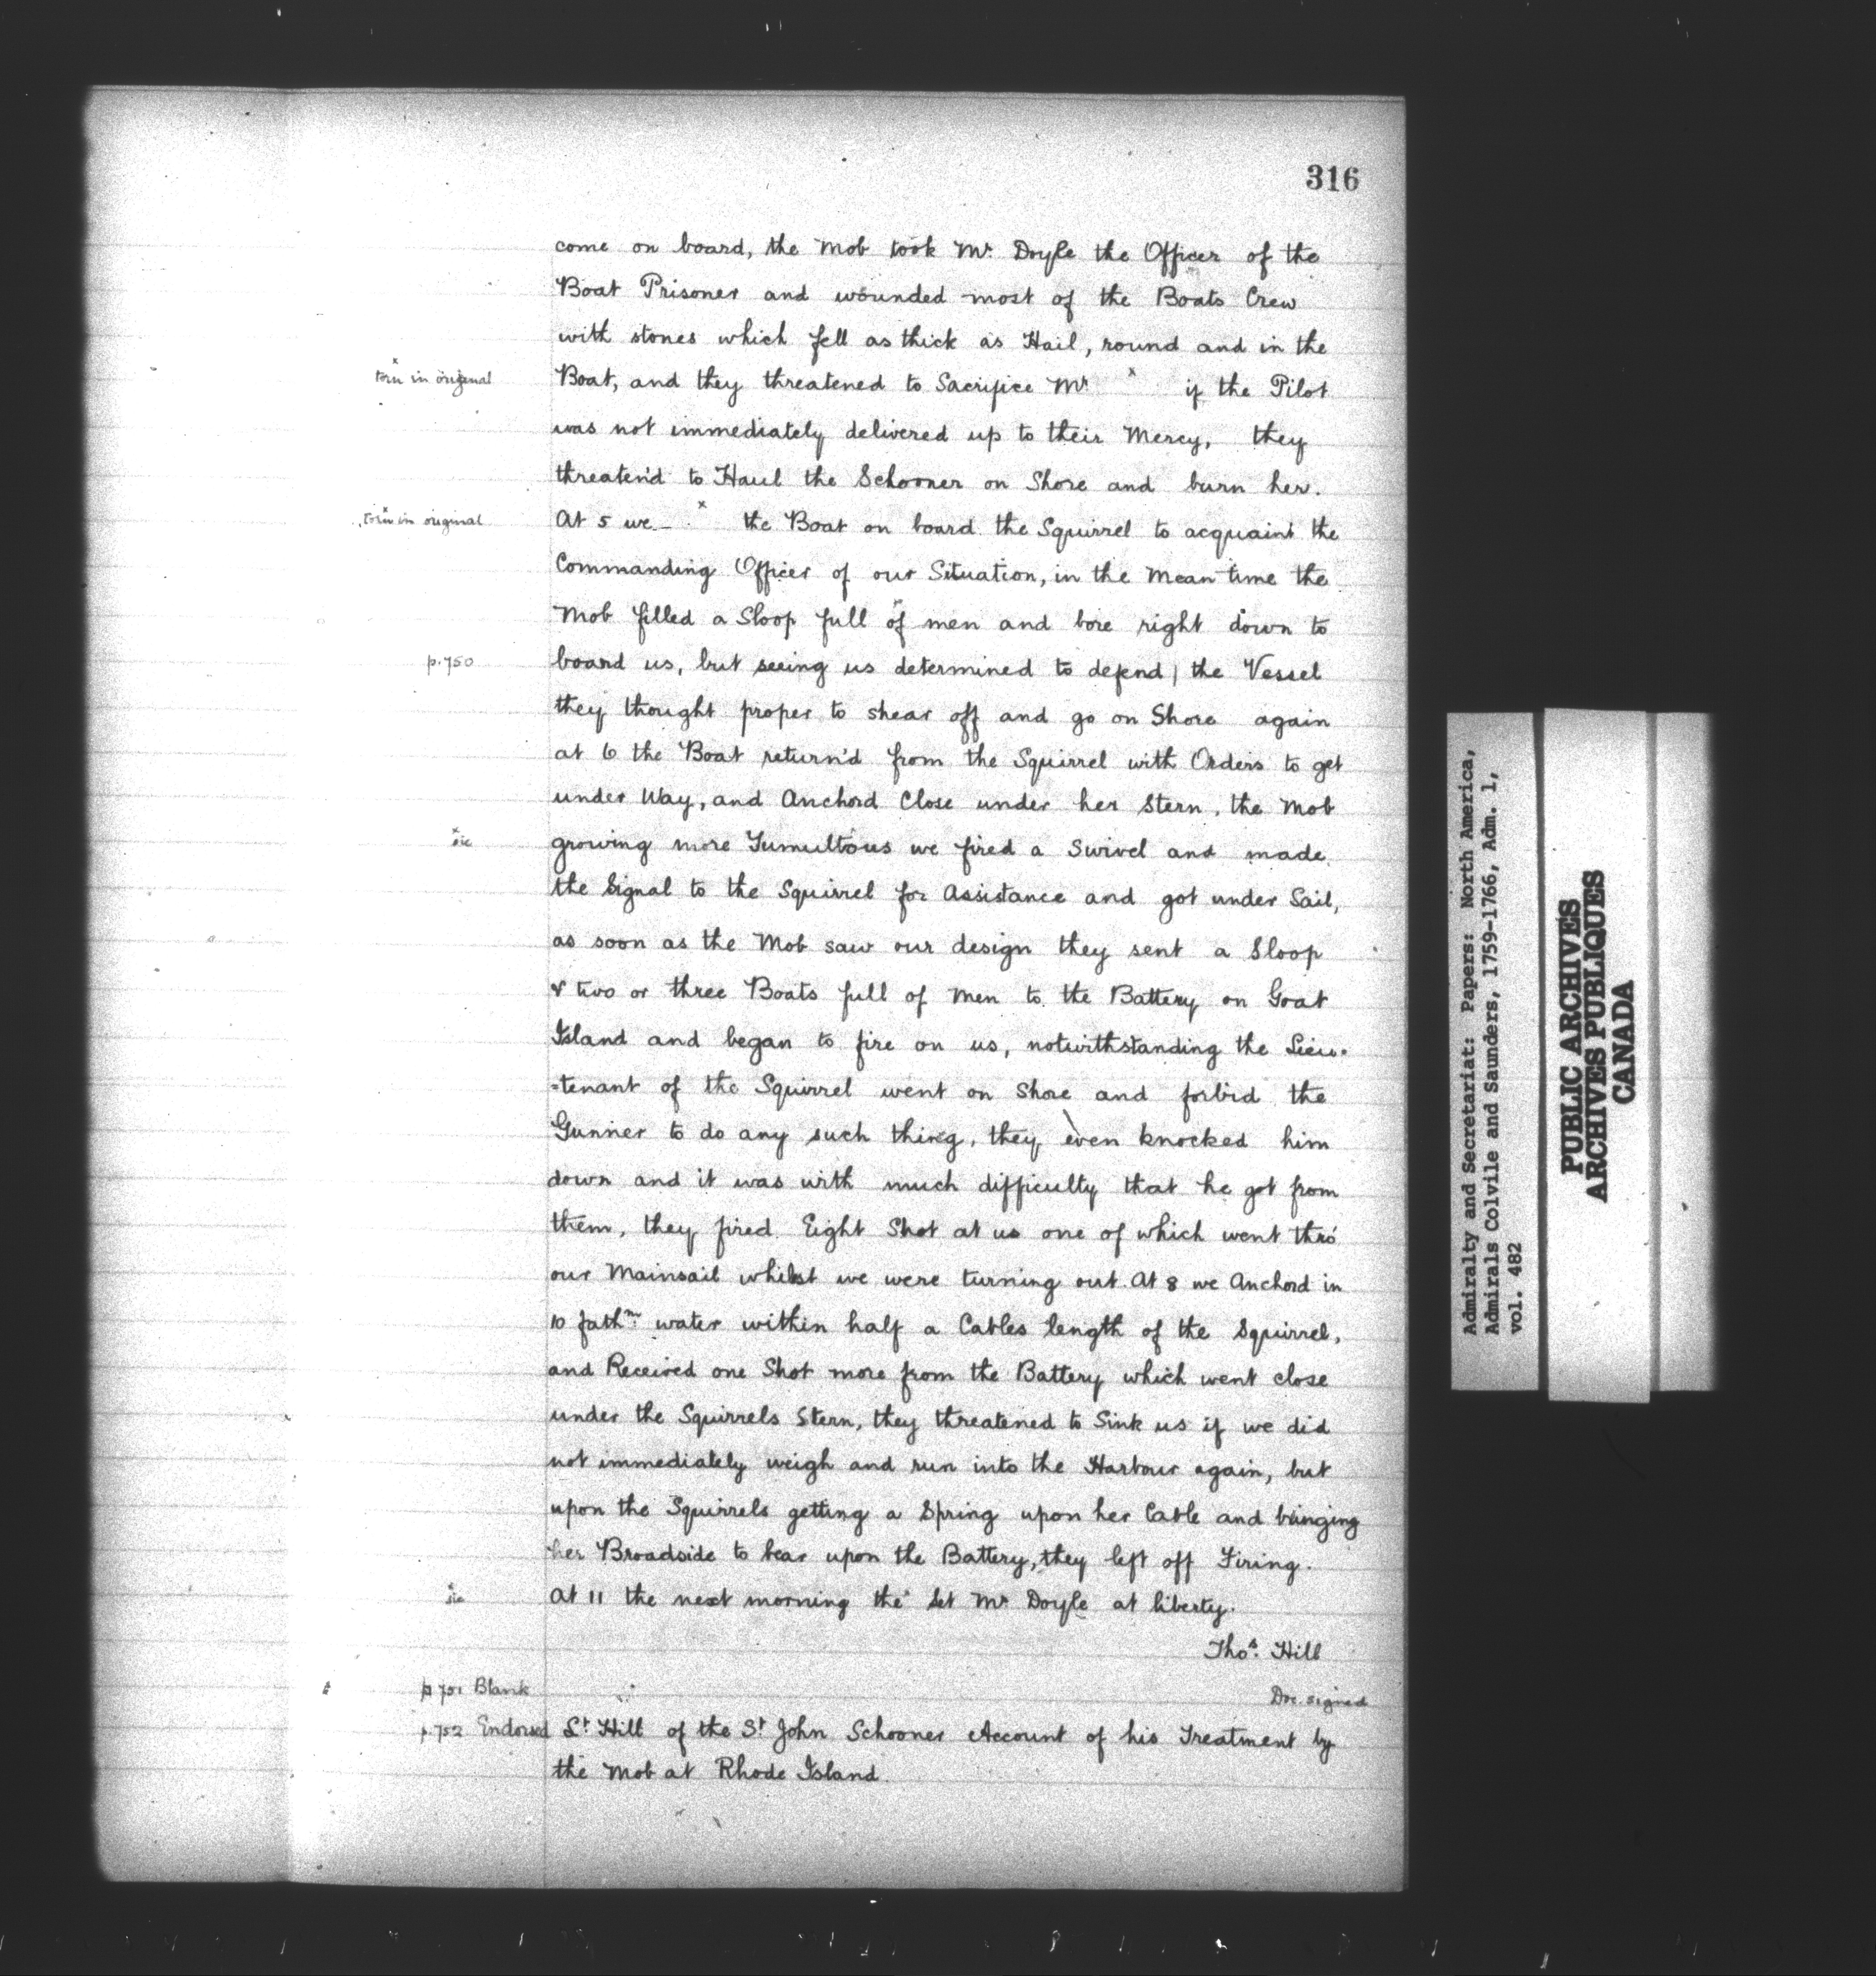 316
come on board, the Mob took Mr. Doyle the Officer of the
Boat Prisoner and wounded most of the Boats Crew
with stones which fell as thick as Hail, round and in the
x torn in original
Boat, and they threatened to Sacrifice Mr x if the Pilot
was not immediately delivered up to their Mercy, they
threaten'd to Haul the Schooner on Shore and burn her.
x torn in original
At 5 we — x the Boat on board the Squirrel to acquaint the
Commanding Officer of our Situation, in the Mean time the
Mob filled a Sloop full of men and bore right down to
p.750
board us, but seeing us determined to defend | the Vessel
they thought proper to shear off and go on Shore again
at 6 the Boat return'd from the Squirrel with Orders to get
under Way, and Anchord Close under her Stern, the Mob
x sic
growing more Tumultous we fired a Swivel and made
the Signal to the Squirrel for Assistance and got under Sail,
as soon as the Mob saw our design they sent a Sloop
& two or three Boats full of Men to the Battery on Goat
Island and began to fire on us, notwithstanding the Lieu-
-tenant of the Squirrel went on Shore and forbid the
Gunner to do any such thing, they even knocked him
down and it was with much difficulty that he got from
them, they fired Eight Shot at us one of which went thro'
our Mainsail whilst we were turning out. At 8 we Anchord in
10 fathm. water within half a Cables length of the Squirrel,
and Received one Shot more from the Battery which went close
under the Squirrels Stern, they threatened to Sink us if we did
not immediately weigh and run into the Harbour again, but
upon the Squirrels getting a Spring upon her Cable and bringing
her Broadside to bear upon the Battery, they left off Firing.
x sic
At 11 the next morning the x let Mr Doyle at liberty.
Thos. Hill
p 751 Blank
Doc. signed
p.752 Endorsed Lt Hill of the St John Schooner Account of his Treatment by
the Mob at Rhode Island.
Admiralty and Secretariat: Papers: North America,
Admirals Colvile and Saunders, 1759-1766, Adm. 1,
vol. 482
PUBLIC ARCHIVES
ARCHIVES PUBLIQUES
CANADA